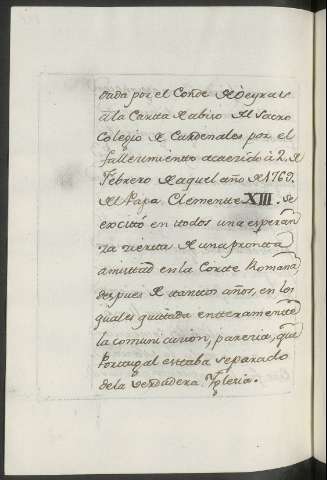 dada por el Conde de Oeyras
à la Carta de abiso del Sacro
Colegio de Cardenales por el
fallecimiento acaecido à 2. de
Febrero de aquel año de 1769.
del Papa Clemente XIII. se
excitó en todos una esperan
za cierta de una pronta
amistad en la Corte Romana
despues de tantos años, en los
quales quitada enteramente
la comunicacion, parecia, que
Portugal estaba separado
de la verdadera Yglesia.